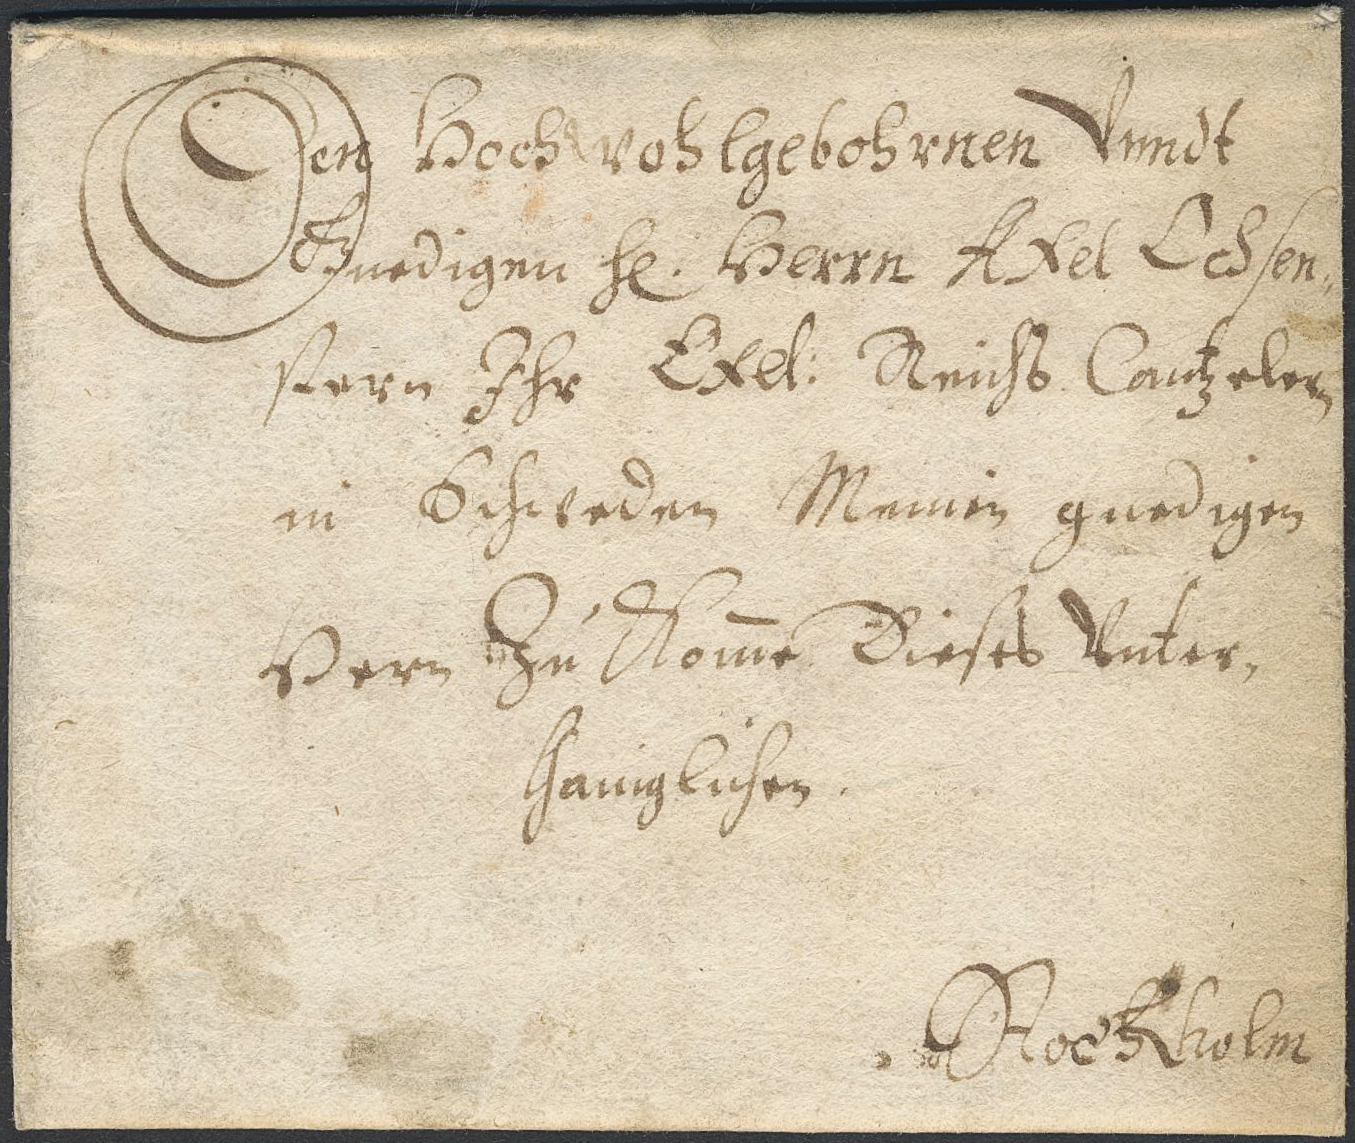 Den Hoch wohlgebohrnen Vnndt
Gnedigen H. Herrn Axel Ochsen„
stern Ihr Exel: Reichs Cantzelern
in Schweden Meinen gnedigen
Hern Zu Kome Dieses Vnter,
thaniglichen.
Stockholm